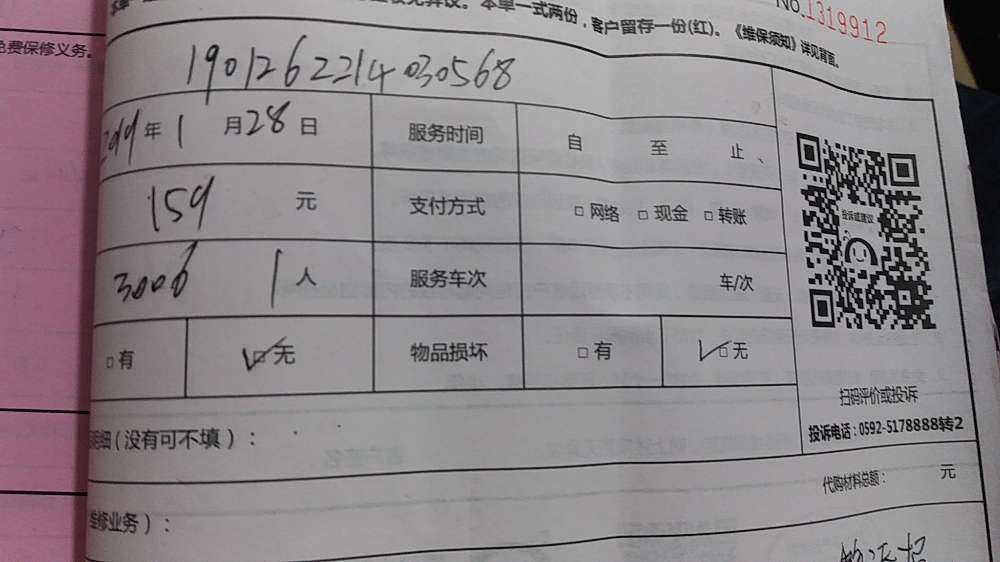 No.1319912
本单一式两份，客户留存一份(红)。《维保须知》详见背面。
免费保修义务。
1901262214030568
2019年1月28日 服务时间 自 至 止
159 元 支付方式 □网络 □现金 □转账
3006 1人 服务车次 车/次
□有 ☑无 物品损坏 □有 ☑无
投诉或建议
扫码评价或投诉
投诉电话：0592-5178888转2
明细（没有可不填）：
代购材料总额： 元
维修业务）：